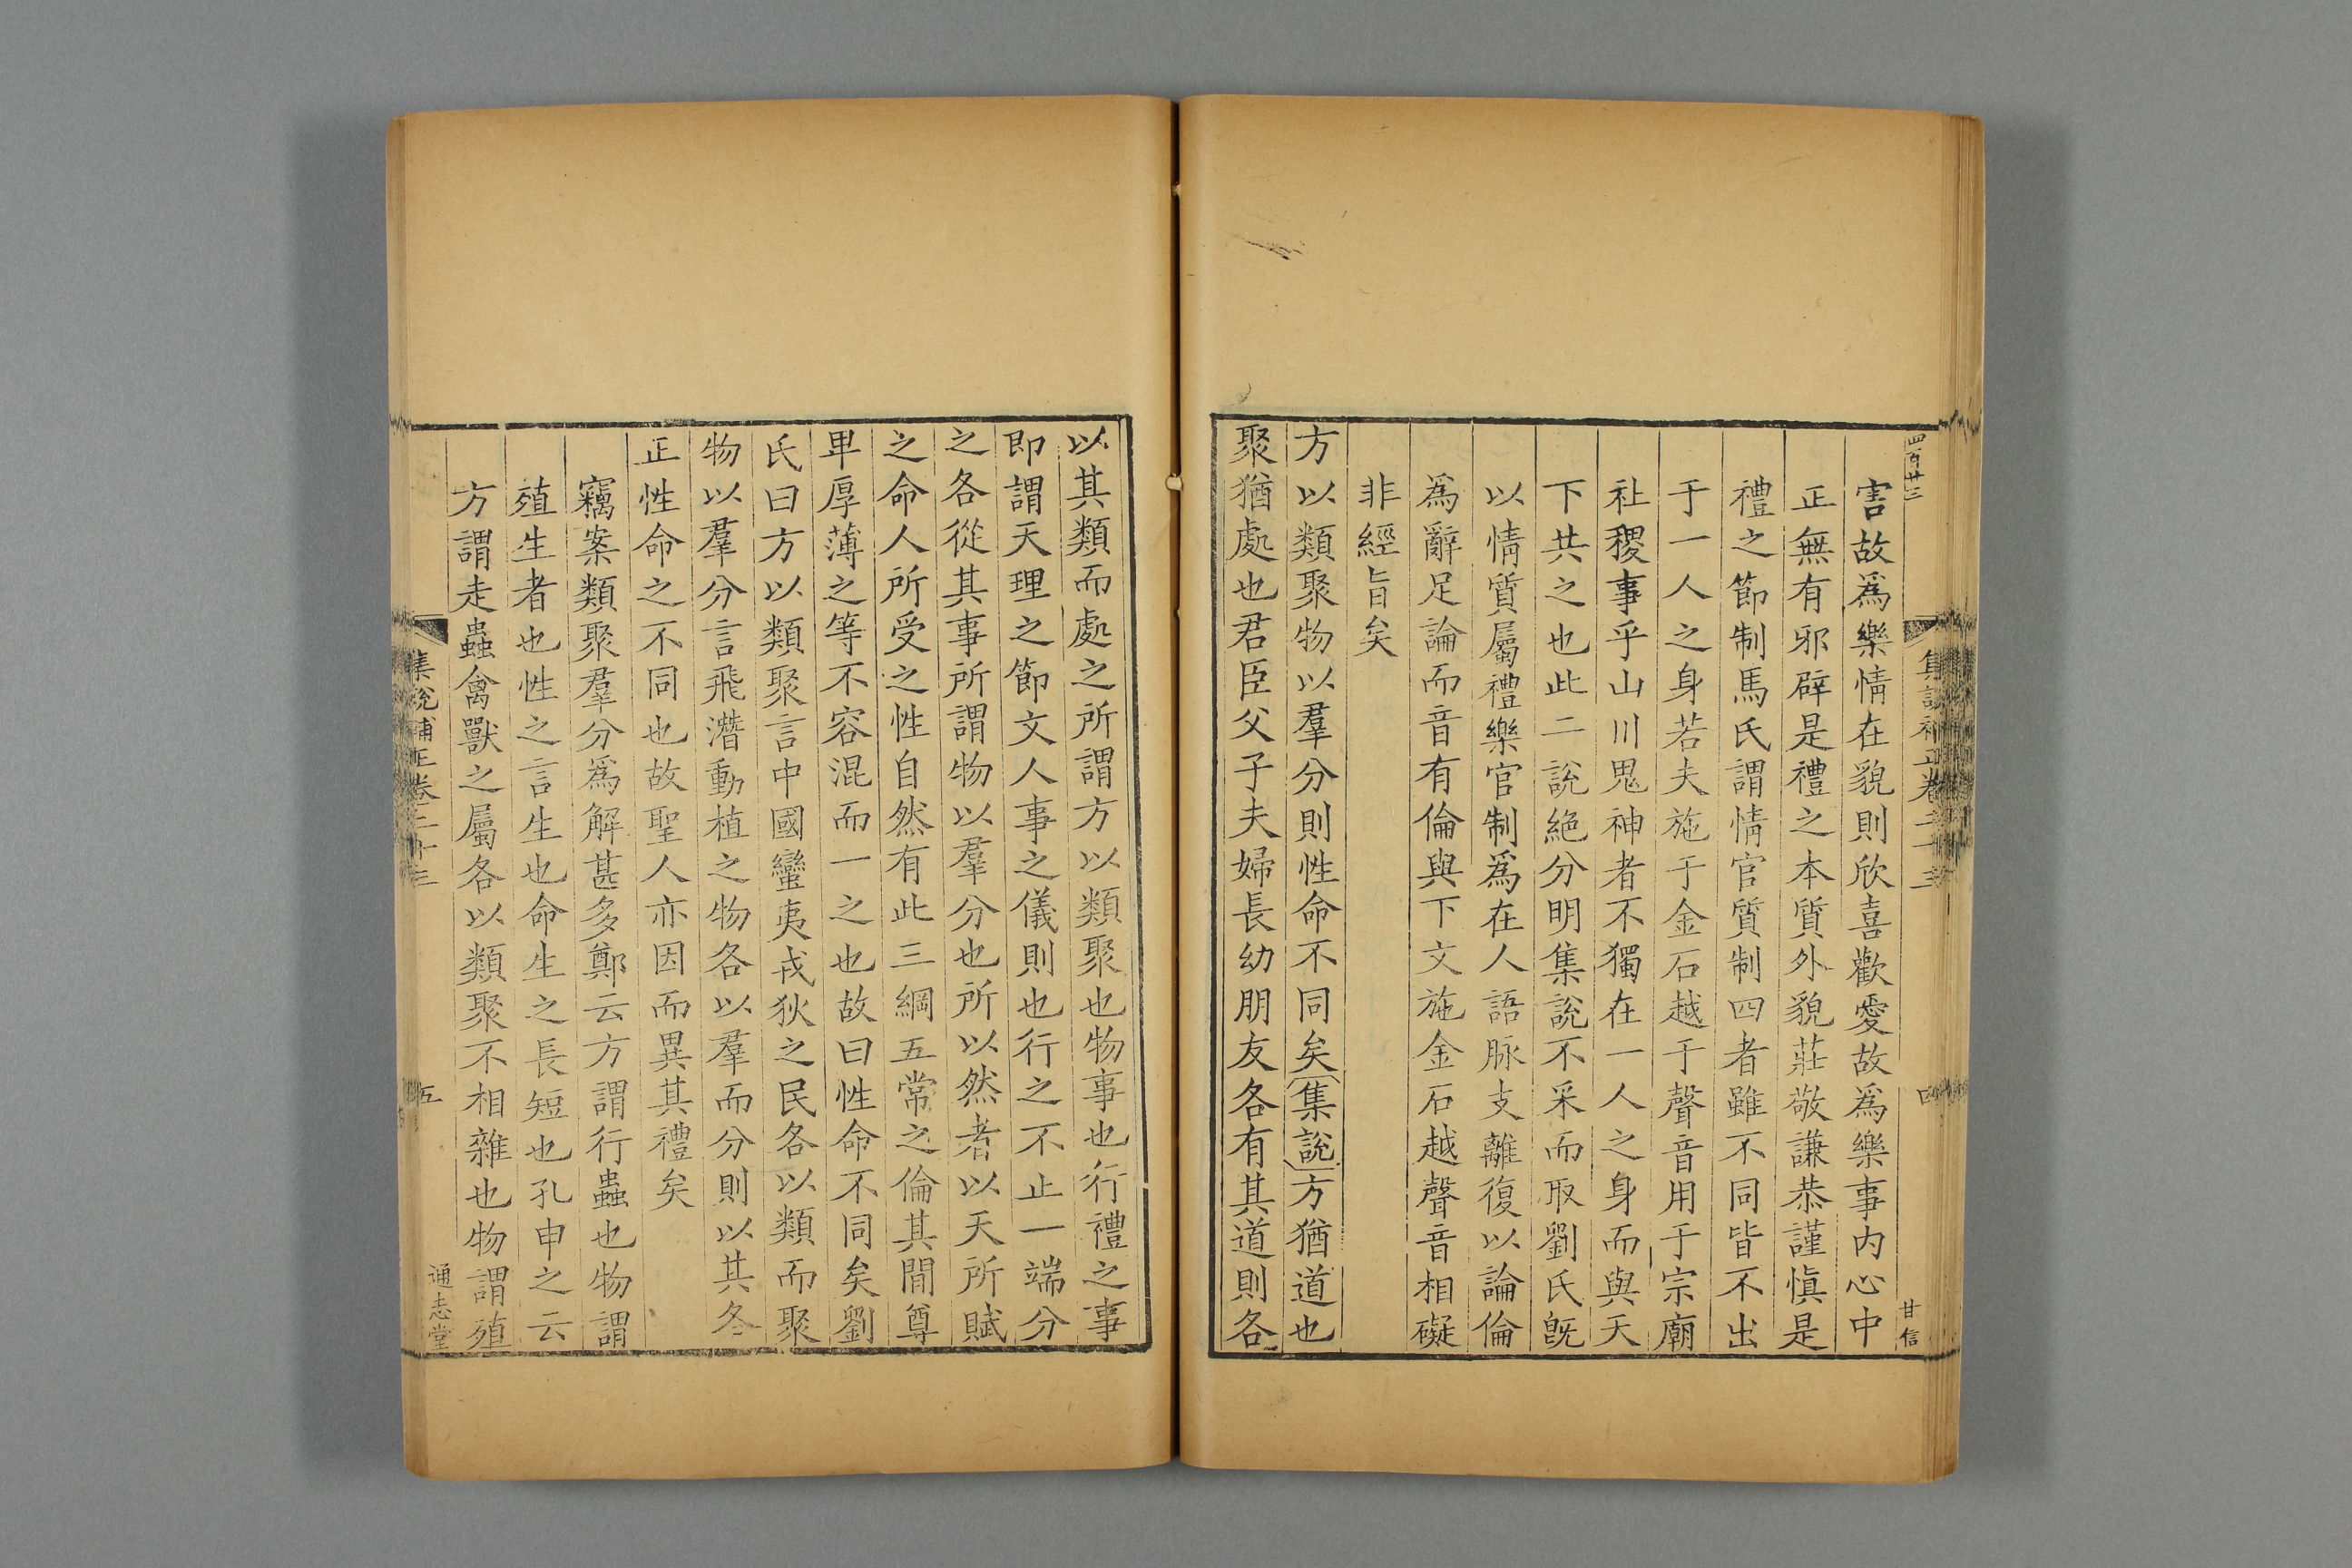 四百廿三
集說補正卷二十三
四
甘信
害故爲樂情在貌則欣喜歡愛故爲樂事內心中
正無有邪辟是禮之本質外貌莊敬謙恭謹愼是
禮之節制馬氏謂情官質制四者雖不同皆不出
于一人之身若夫施于金石越于聲音用于宗廟
社稷事乎山川鬼神者不獨在一人之身而與天
下共之也此二說絶分明集說不采而取劉氏旣
以情質屬禮樂官制爲在人語脉支離復以論倫
爲辭足論而音有倫與下文施金石越聲音相礙
非經旨矣
方以類聚物以羣分則性命不同矣集說方猶道也
聚猶處也君臣父子夫婦長幼朋友各有其道則各
以其類而處之所謂方以類聚也物事也行禮之事
即謂天理之節文人事之儀則也行之不止一端分
之各從其事所謂物以羣分也所以然者以天所賦
之命人所受之性自然有此三綱五常之倫其間尊
卑厚薄之等不容混而一之也故曰性命不同矣劉
氏曰方以類聚言中國蠻夷戎狄之民各以類而聚
物以羣分言飛潛動植之物各以羣而分則以其各
正性命之不同也故聖人亦因而異其禮矣
竊案類聚羣分爲解甚多鄭云方謂行蟲也物謂
殖生者也性之言生也命生之長短也孔申之云
方謂走蟲禽獸之屬各以類聚不相雜也物謂殖
集說補正卷二十三
五
通志堂